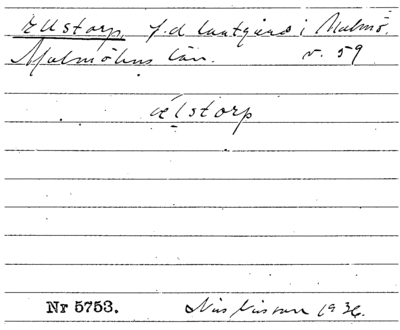 Ellstorp, f.d. lantgård i Malmö.
Malmöhus län. v. 59
ælstorp
Nr 5753. Nils Nilsson 1936.